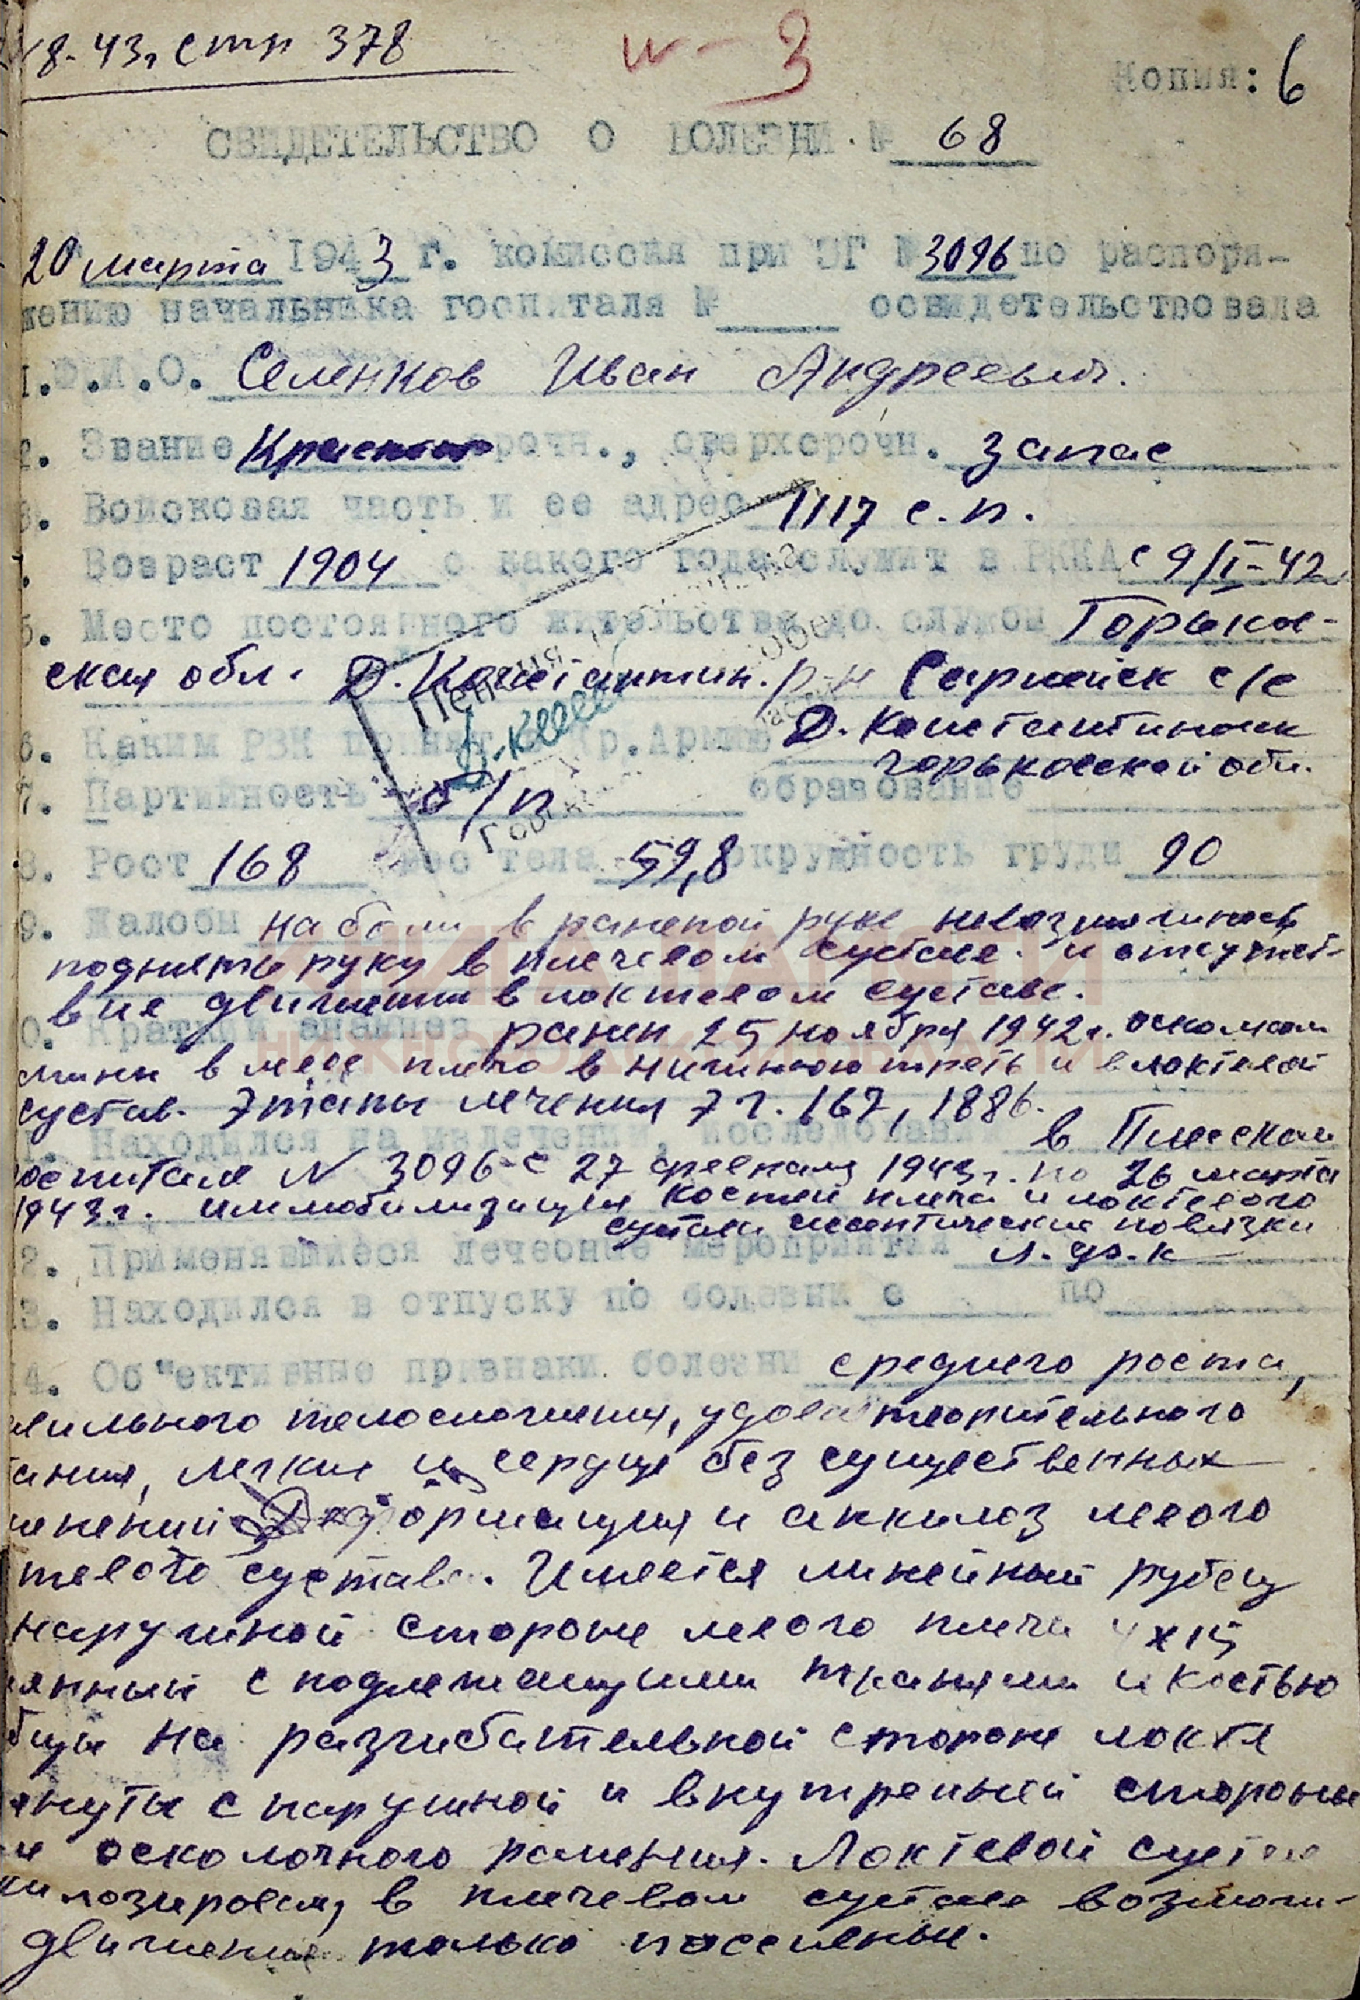 8-43г стр 378
и-3
Копия: 6
СВИДЕТЕЛЬСТВО О БОЛЕЗНИ № 68
20 марта 1943 г. комиссия при ЭГ № 3096 по распоря-
жению начальника госпиталя № освидетельствовала
1. Ф.И.О. Селенков Иван Андреевич.
2. Звание срочн., сверхсрочн. запас
3. Войсковая часть и ее адрес 1117 с.п.
Возраст 1904 с какого года служит в РККА с 9/I-42
5. Место постоянного жительства до службы Горьков-
ская обл. Д.Константин. р-н Сарлейск с/с
6. Каким РВК принят в Кр.Армию Д.Константиновск
Горьковской обл.
7. Партийность б/п образование
8. Рост 168 вес тела 59,8 окружность груди 90
9. Жалобы на боли в раненой руке невозможность
поднять руку в плечевом суставе и отсутст-
вие движения в локтевом суставе.
КНИГА ПАМЯТИ
НИЖЕГОРОДСКОЙ ОБЛАСТИ
0. Краткий анамнез ранен 25 ноября 1942г. осколком
мины в левое плечо в нижнюю треть и в локтевой
сустав. Этапы лечения 167, 1886.
1. Находился на излечении, исследовании в
госпитале № 3096 с 27 февраля 1943г. по 26 марта
1943г. иммобилизация костей плеча и локтевого
сустава асептические повязки
2. Применявшиеся лечебные мероприятия
13. Находился в отпуску по болезни с по
14. Об"ективные признаки болезни среднего роста,
вильного телосложения, удовлетворительного
тания, легкие и сердце без существенных
менений Деформация и анкилоз левого
тевого сустава. Имеется линейный рубец
наружной стороне левого плеча 4х15
янный с подлежащими тканями и костью
бцы на разгибательной стороне локтя
януты с наружной и внутренней стороны
осколочного ранения. Локтевой сустав
килозирован, в плечевом суставе возможн-
движения только пассивные.